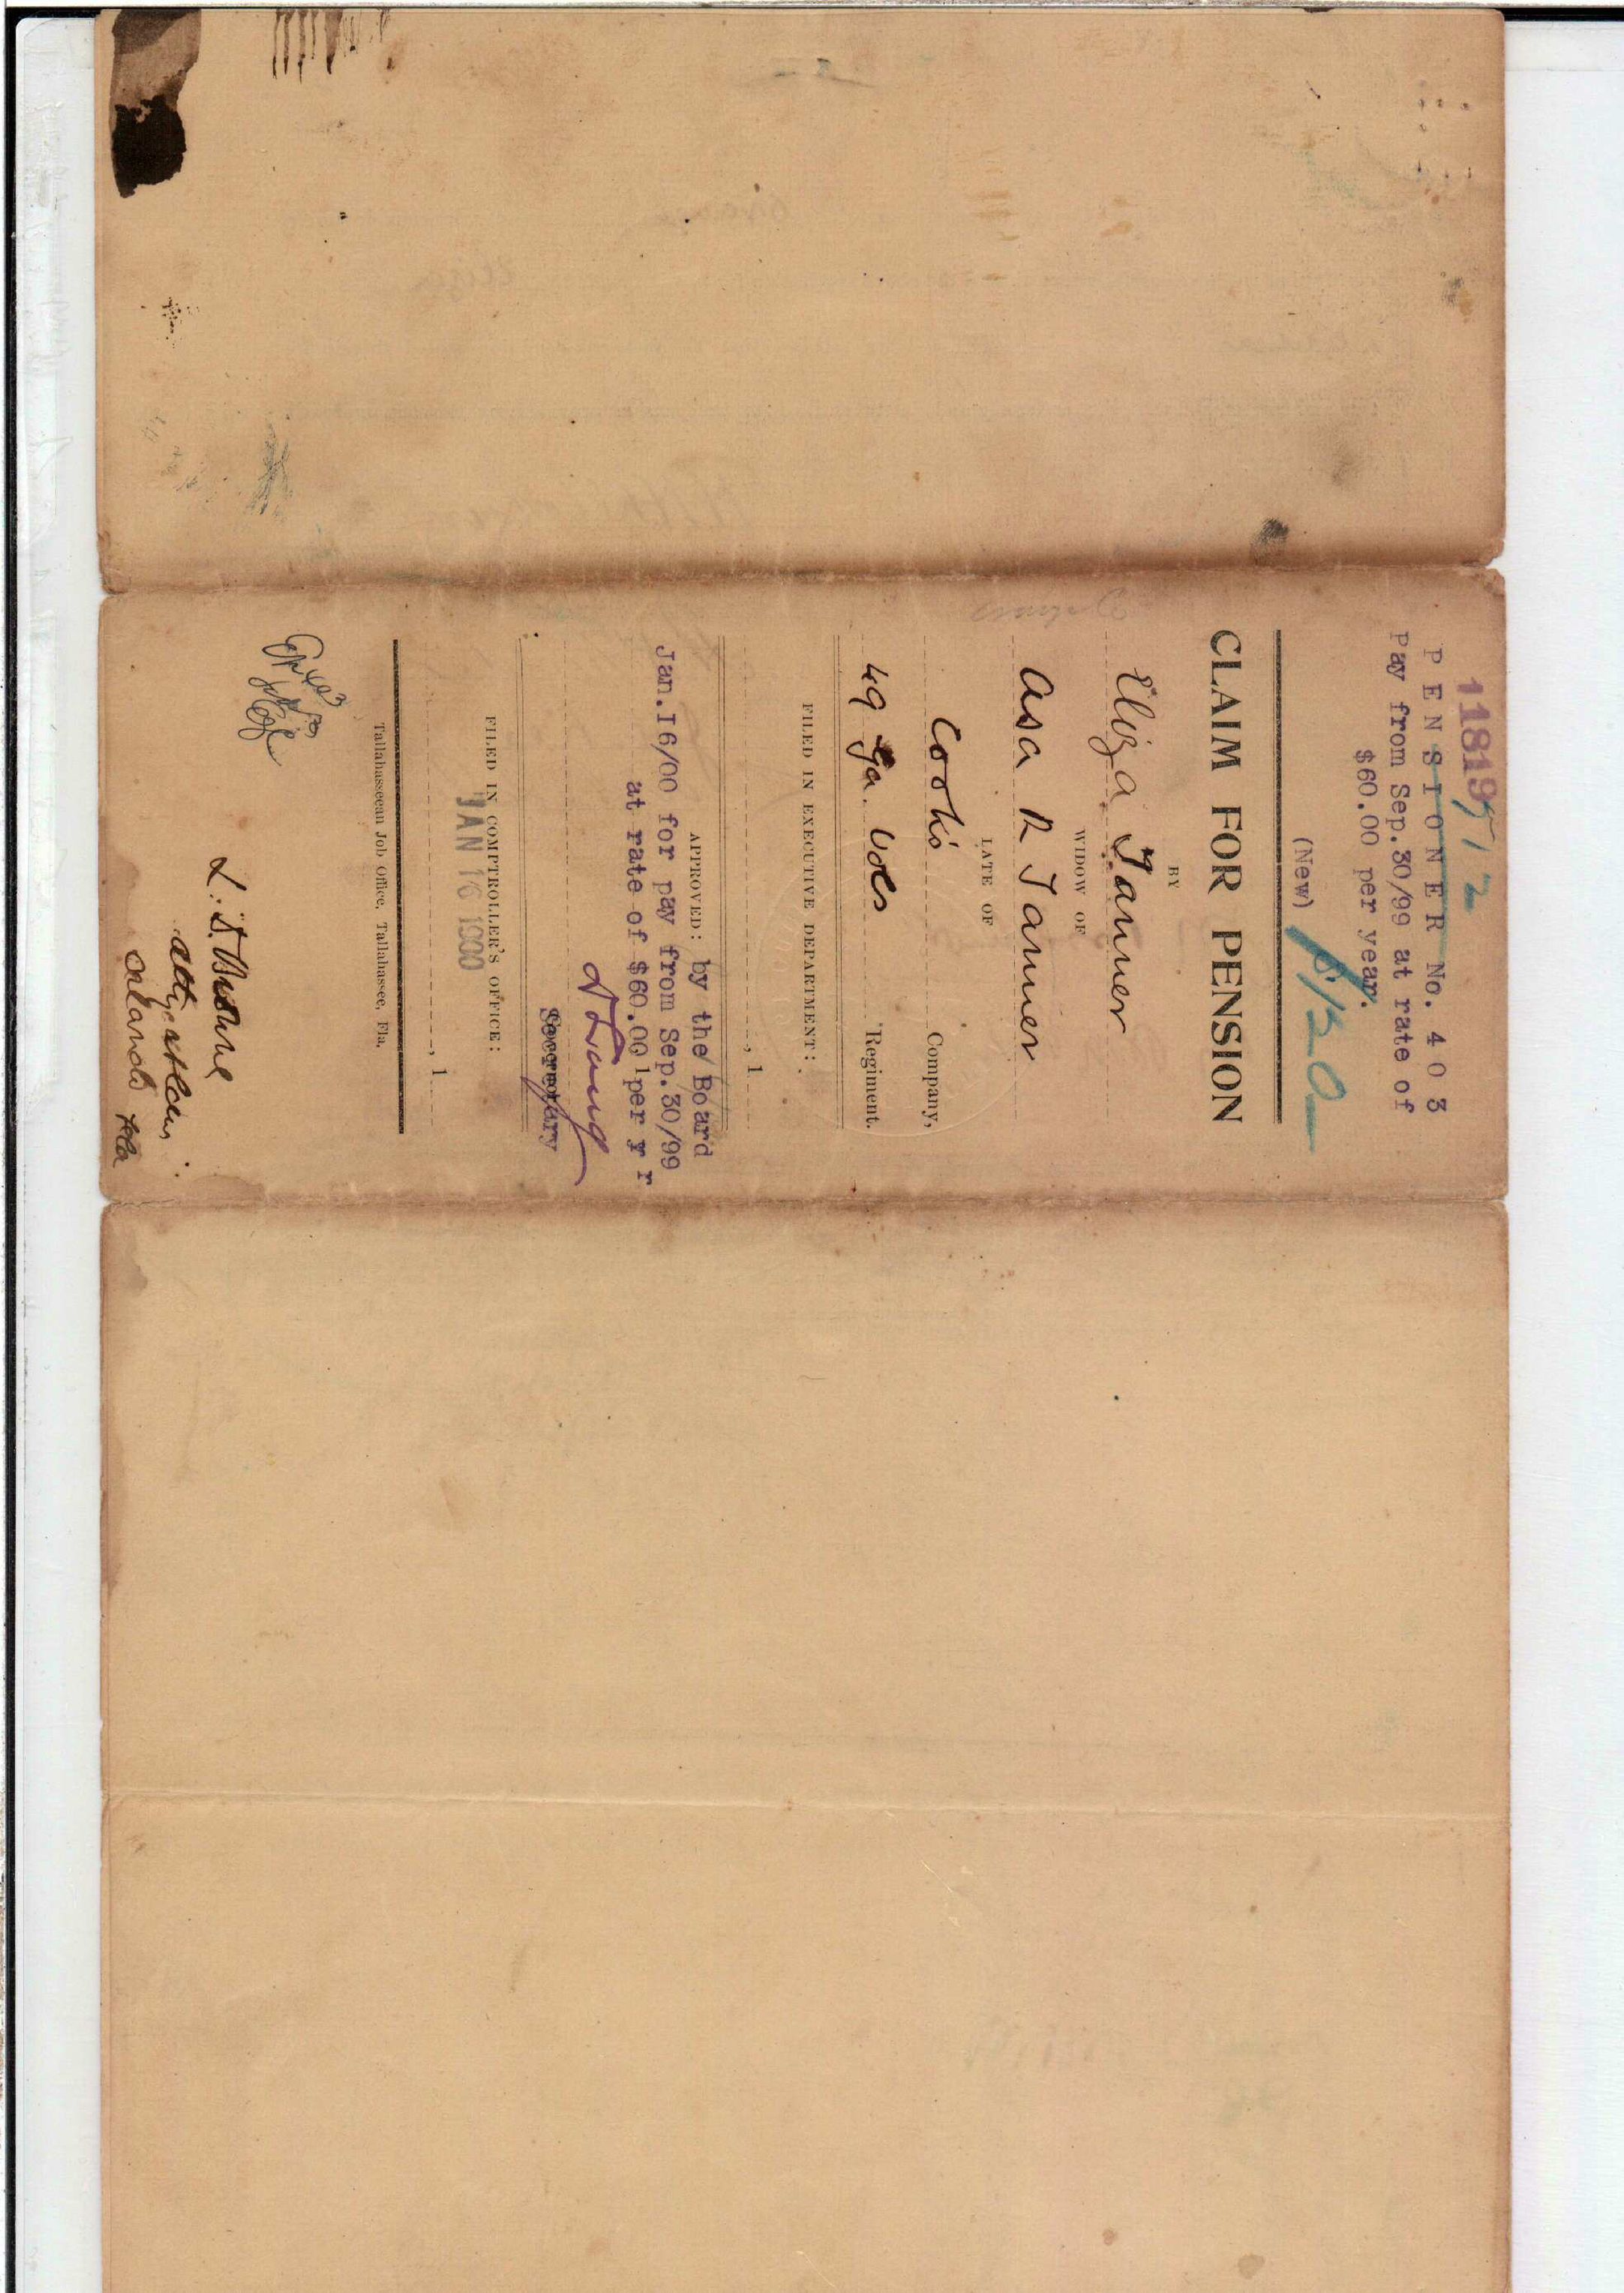 11819
P E N S I O N E R No. 4 0 3
Pay from Sep.30/99 at rate of
$60.00 per year.
(New)
CLAIM FOR PENSION
BY
Eliza Tanner
WIDOW OF
Asa R Tanner
LATE OF
Cooks Company,
49 Ga. Vols Regiment.
FILED IN EXECUTIVE DEPARTMENT:
, 1
APPROVED: by the Board
Jan.16/00 for pay from Sep.30/99
at rate of $60.00 1 per y r
Secretary
FILED IN COMPTROLLER'S OFFICE:
JAN 16 1900
, 1
Tallahasseean Job Office, Tallahassee, Fla.
403
atty at law
Orlando Fla